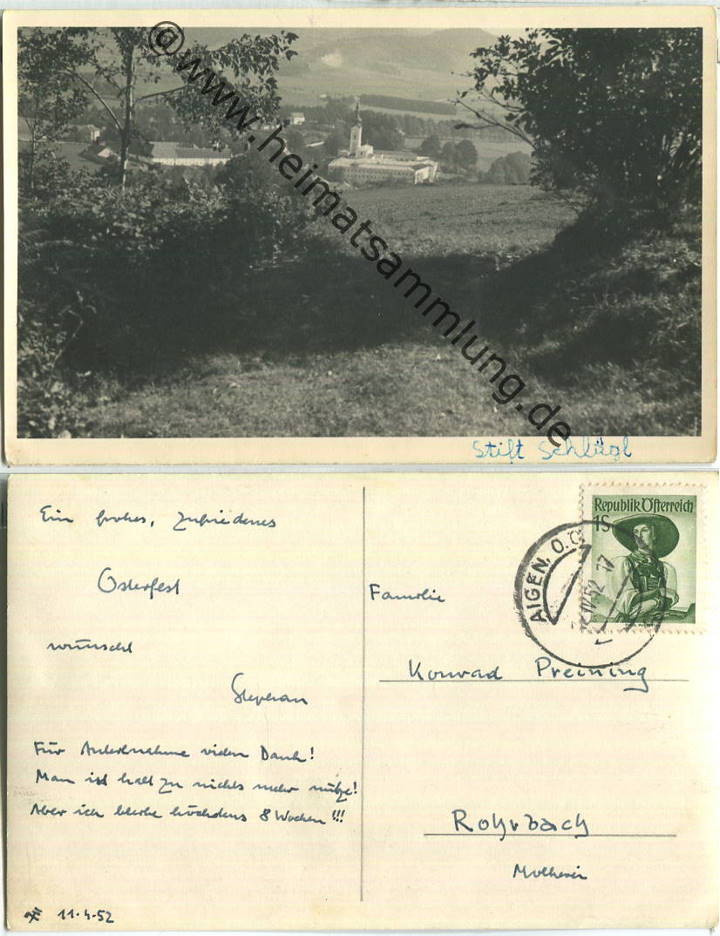 © www.heimatsammlung.de
Stift Schlägl
Ein frohes, zufriedenes
Osterfest
wünscht
Stepesan
Für Anteilnahme vielen Dank!
Man ist halt zu nichts mehr nütze!
Aber ich bleibe höchstens 8 Wochen!!!
11.4.52
Republik Österreich
1S
AIGEN, O.Ö.
52
17
Familie
Konrad Preining
Rohrbach
Molkerei